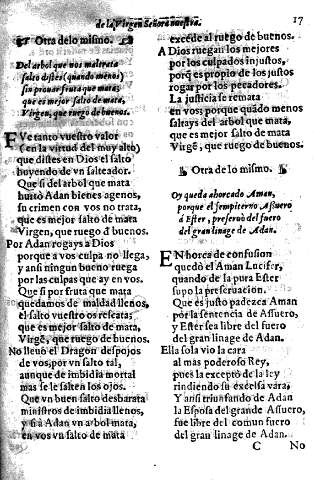 de la Virgen Señora nuestra. 17
Otra de lo mismo.
Del arbol que nos maltrata
salto distes (quando menos)
sin prouar fruta que mata,
que es mejor salto de mata,
Virgen, que ruego de buenos.
FVe tanto vuestro valor
(en la virtud del muy alto)
que distes en Dios el salto
huyendo de vn salteador.
Que si del arbol que mata
hurtò Adan bienes agenos,
su crimen con vos no trata,
que es mejor salto de mata
Virgen, que ruego d̃ buenos.
Por Adan rogays a Dios
porque a vos culpa no llega,
y ansi ningun bueno ruega
por las culpas que ay en vos.
Que si por fruta que mata
quedamos de maldad llenos,
el salto vuestro os rescata;
que es mejor salto de mata,
Virgẽ, que ruego de buenos.
No lleuò el Dragon despojos
de vos, por vn salto tal,
aunque de imbidia mortal
mas se le salten los ojos.
Que vn buen salto desbarata
ministros de imbidia llenos,
y si à Adan vn arbol mata,
en vos vn salto de mata
excede al ruego de buenos.
A Dios ruegan los mejores
por los culpados injustos,
porq̃ es propio de los justos
rogar por los pecadores.
La justicia se remata
en vos; porque quãdo menos
saltays del arbol que mata,
que es mejor salto de mata
Virgẽ, que ruego de buenos.
Otra de lo mismo.
Oy queda ahorcado Aman,
porque el sempiterno Assuero
à Ester, preseruò del fuero
del gran linage de Adan.
EN horca de confusion
quedò el Aman Lucifer,
quando de la pura Ester
supo la preseruacion.
Que es justo padezca Aman
por la sentencia de Assuero,
y Ester sea libre del fuero
del gran linage de Adan.
Ella sola vio la cara
al mas poderoso Rey,
pues la exceptò de la ley
rindiendo su excelsa vara,
Y ansi triunfando de Adan
la Esposa del grande Assuero,
fue libre del comun fuero
del gran linage de Adan.
C No